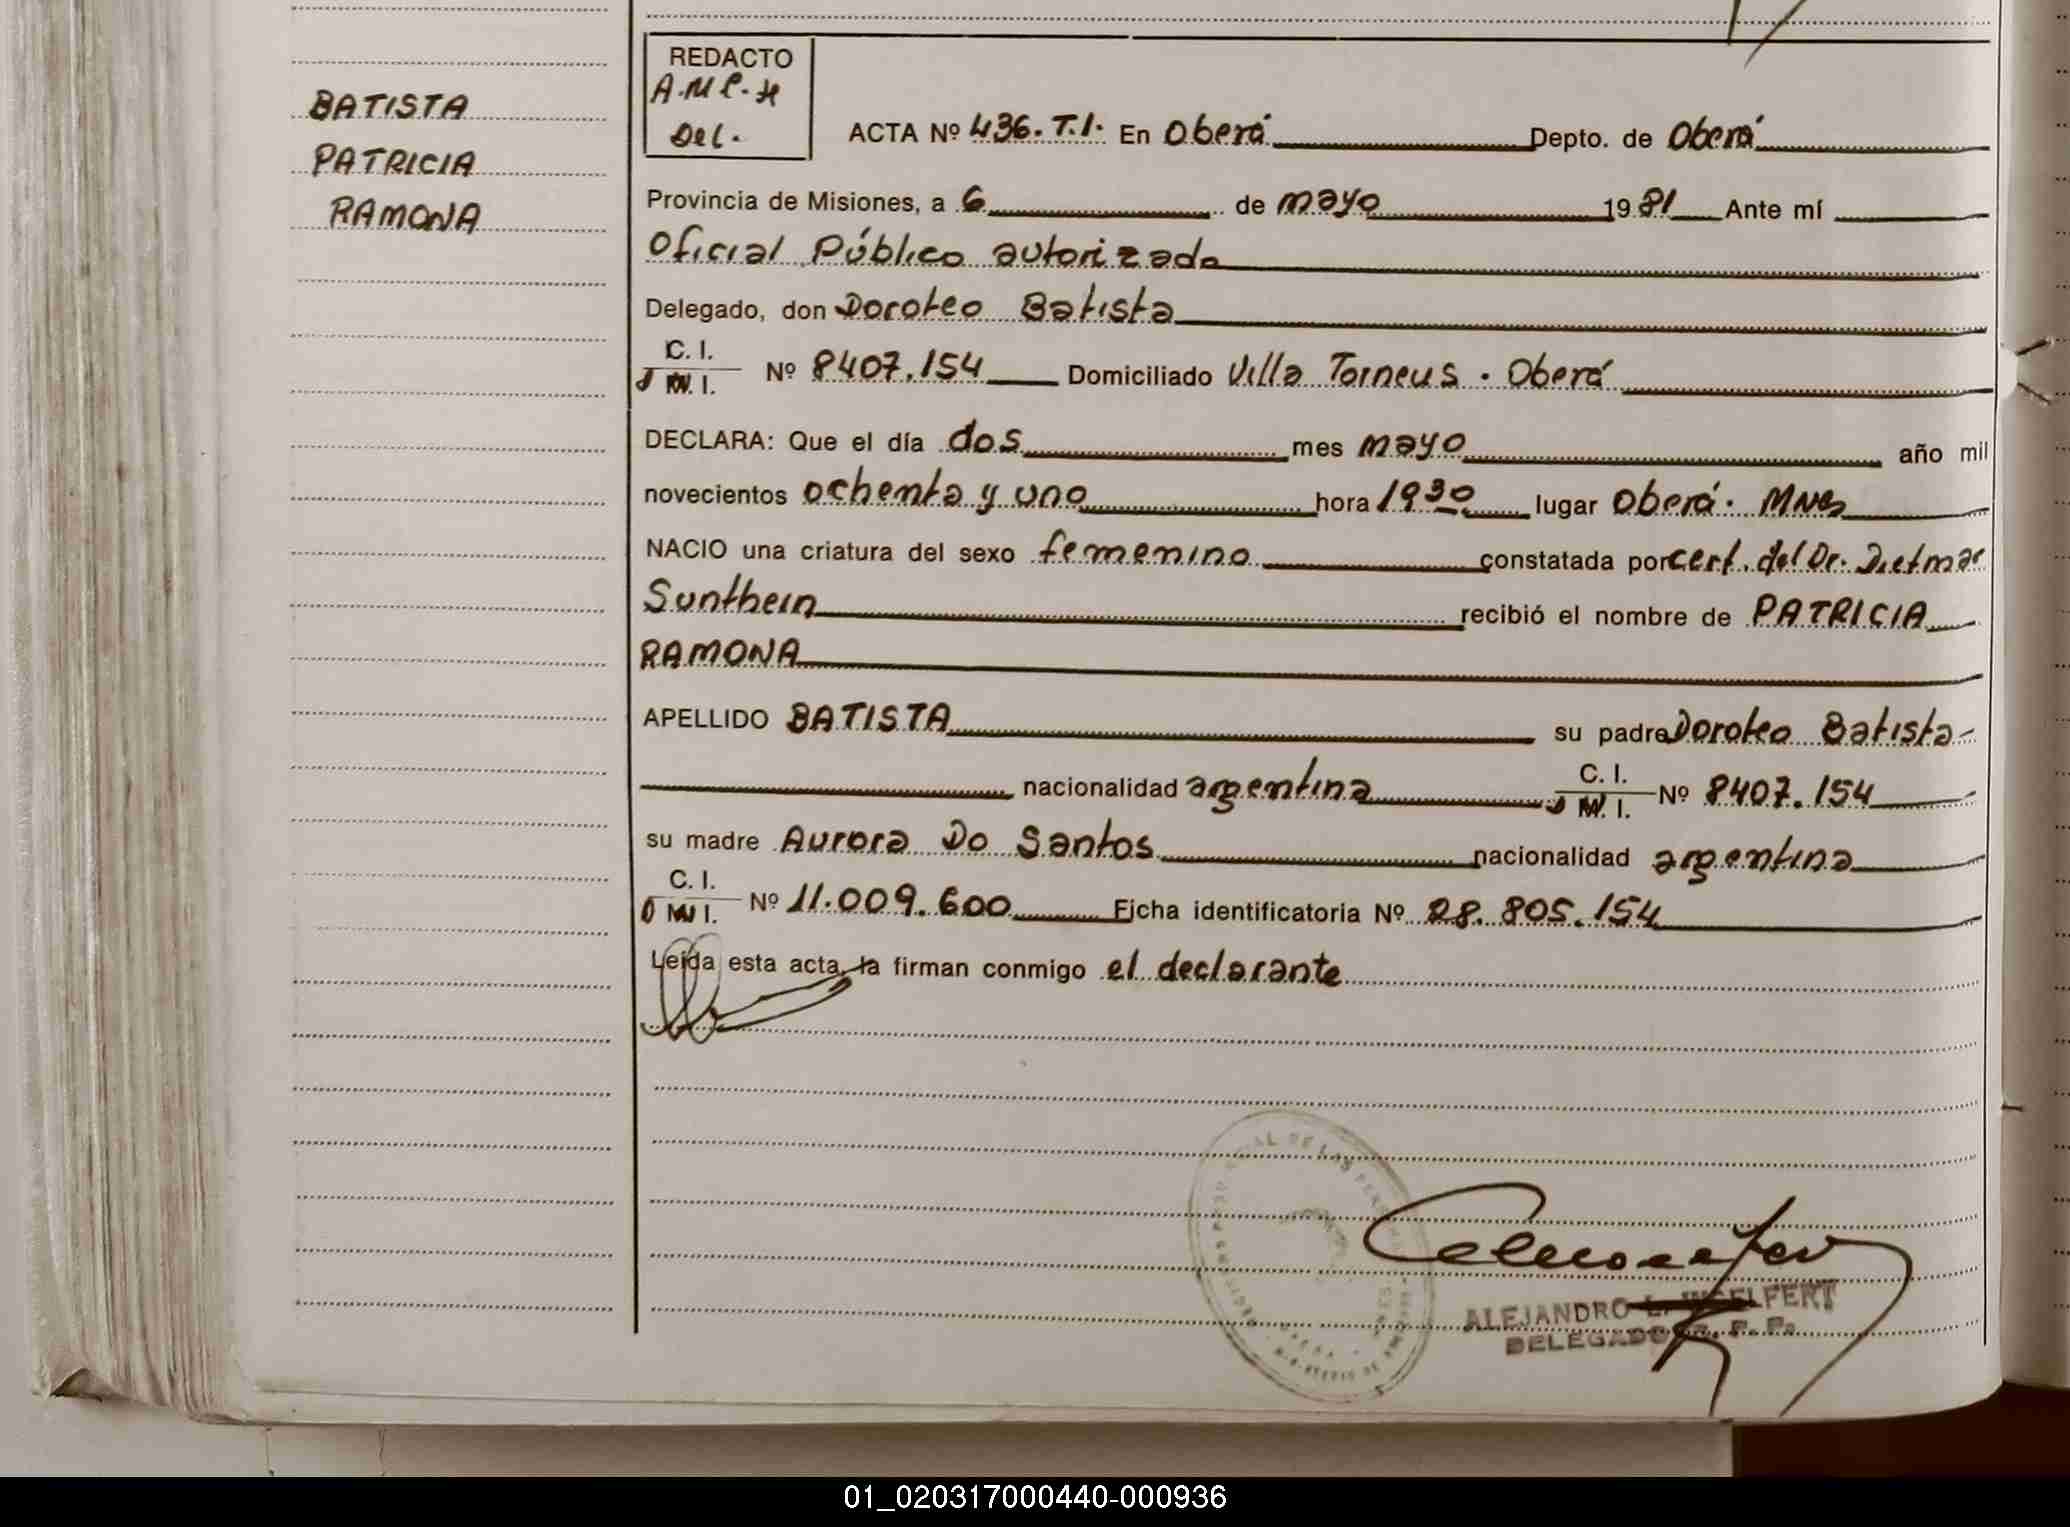 BATISTA
PATRICIA
RAMONA
REDACTO
A.M.P.H
Del.
ACTA Nº 436. T.I. En Oberá Depto. de Oberá
Provincia de Misiones, a 6 de mayo 1981 Ante mí
Oficial Público autorizado
Delegado, don Doroteo Batista
C. I.
D N. I. Nº 8407.154 Domiciliado Villa Torneus. Oberá
DECLARA: Que el día dos mes mayo año mil
novecientos ochenta y uno hora 19 30 lugar Oberá. MNes
NACIO una criatura del sexo femenino constatada por cert. del Dr. Dietmar
Sunthein recibió el nombre de PATRICIA
RAMONA
APELLIDO BATISTA su padre Doroteo Batista
nacionalidad argentina C. I.
D N. I. Nº 8407.154
su madre Aurora Do Santos nacionalidad argentina
C. I.
D N I. Nº 11.009.600 Ficha identificatoria Nº 28.805.154
Leída esta acta, la firman conmigo el declarante
ALEJANDRO L. INGELFERT
DELEGADO R. P. P.
01_020317000440-000936